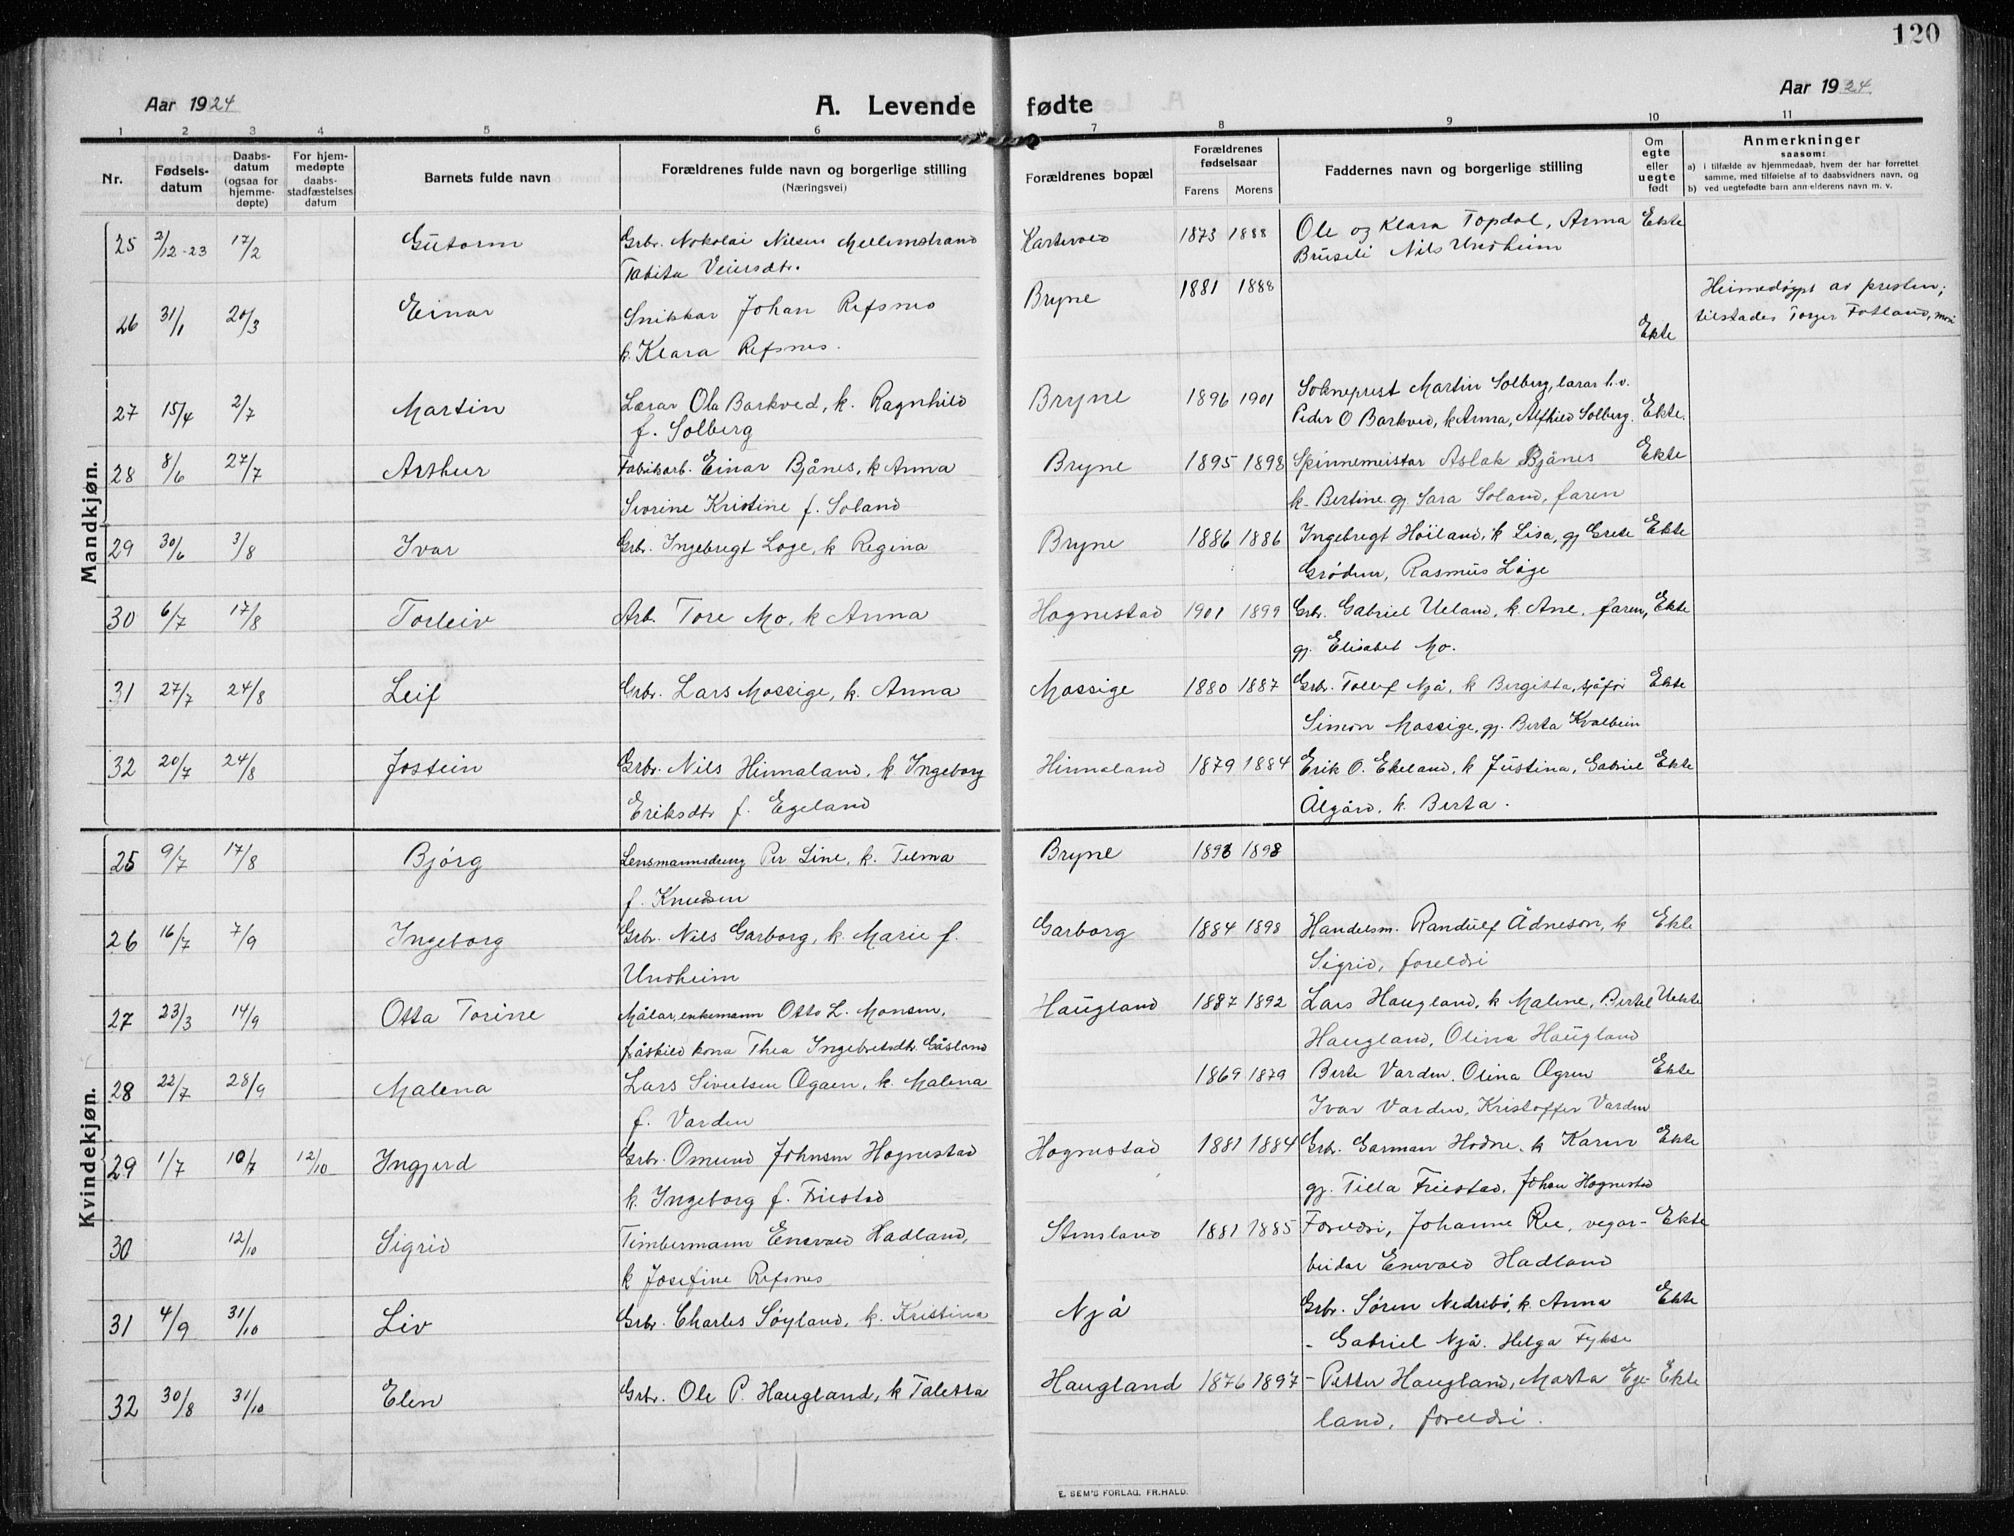 120
Aar 1924
A. Levende fødte
Aar 1924
1 2 3 4 5 6 7 8 9 10 11
Nr.
Fødsels-
datum
Daabs-
datum
(ogsaa for
hjemme-
døpte)
For hjem-
medøpte
daabs-
stadfæstelses
datum
Barnets fulde navn
Forældrenes fulde navn og borgerlige stilling
(Næringsvei)
Forældrenes bopæl
Forældrenes
fødselsaar
Farens Morens
Faddernes navn og borgerlige stilling
Om
egte
eller
uegte
født
Anmerkninger
saasom:
a) i tilfælde av hjemmedaab, hvem der har forrettet
samme, med tilføielse af to daabsvidners navn, og
b) ved uegtefødte barn ann elderens navn m. v.
Mandkjøn.
25 2/12-23 17/2 Gutorm Grbr. Nokolai Nilsen Mellemstrand Kartevold 1873 1888 Ole og Klara Topdal, Anna Ekte
Tabita Veiersdtr. Bruseli Nils Undheim
26 31/1 20/3 Einar Snikkar Johan Refsnes Bryne 1881 1888 Ekte Heimedøypt av presten;
k. Klara Refsnes. tilstades Torger Fotland,
27 15/4 2/7 Martin Lærar Ola Barkved, k. Ragnhild Bryne 1896 1901 Sokneprest Martin Solberg, lærar h.v. Ekte.
f. Solberg Peder O Barkved, k Anna, Alfhild Solberg.
28 8/6 27/7 Arthur Fabrikarb. Einar Bjånes, k Anna Bryne 1895 1898 Spinnemeistar Aslak Bjånes Ekte
Sivrine Kristine f. Soland k. Bertine gj Sara Soland, faren
29 30/6 3/8 Ivar Grbr. Ingebregt Loge, k Regina Bryne 1886 1886 Ingebregt Høiland, k Lisa, gj Grete Ekte
Grødem, Rasmus Løge
30 6/7 17/8 Torleiv Arb. Tore Mo, k Anna Hognestad 1901 1899 Grbr. Gabriel Ueland, k. Ane, faren, Ekte
gj. Elisabet Mo.
31 27/7 24/8 Leif Grbr. Lars Mossige, k. Anna Mossige 1880 1887 Grbr. Tollef Njå, k Bergitta, sjåfør Ekte
Simon Mossige, gj. Berta Kvalbein
32 20/7 24/8 Jostein Grbr. Nils Hinnaland, k Ingeborg Hinnaland 1879 1884 Erik O. Ekeland, k Justina, Gabriel Ekte
Eriksdtr f. Egeland Ålgård, k. Berta.
Kvindekjøn.
25 9/7 17/8 Bjørg Lensmannsdreng Per Line, k. Telma Bryne 1898 1898
f. Knudsen
26 16/7 7/9 Ingeborg Grbr. Nils Garborg, k. Marie f. Garborg 1884 1898 Handelsm. Randulf Ådneson, k Ekte
Undheim Sigrid, foreldri
27 23/3 14/9 Otta Torine Målar, enkemann Otto L. Monsen, Haugland 1887 1892 Lars Haugland, k Maline, Bertel Uekte
fråskild kona Thea Ingebretsdtr. Gåsland Haugland, Olina Haugland
28 22/7 28/9 Malena Lars Sivertsen Ogaen, k. Malena 1869 1879 Berte Varden, Olina Ogren Ekte
f. Varden Ivar Varden, Kristoffer Varden
29 1/7 10/7 12/10 Ingjerd Grbr. Omund Johnsen Hognestad Hognestad 1881 1884 Grbr. Garman Hodne, k Karen Ekte
k. Ingeborg f. Friestad gj. Tilla Friestad, Johan Hognestad
30 12/10 Sigrid Timbermann Enevald Hadland, Stensland 1881 1885 Foreldri, Johanne Ree, vegar- Ekte
k Josefine Refsnes beidar Enevald Hadland
31 4/9 31/10 Liv Grbr. Charles Søyland, k. Kristina Njå Grbr. Søren Nedrebø, k. Anna Ekte
- Gabriel Njå. Helga Tykse
32 30/8 31/10 Elen Grbr. Ole P. Haugland, k Taletta Haugland 1876 1897 - Petter Haugland, Marta Ege- Ekte
land, foreldri.
E. SEM'S FORLAG, FR.HALD.